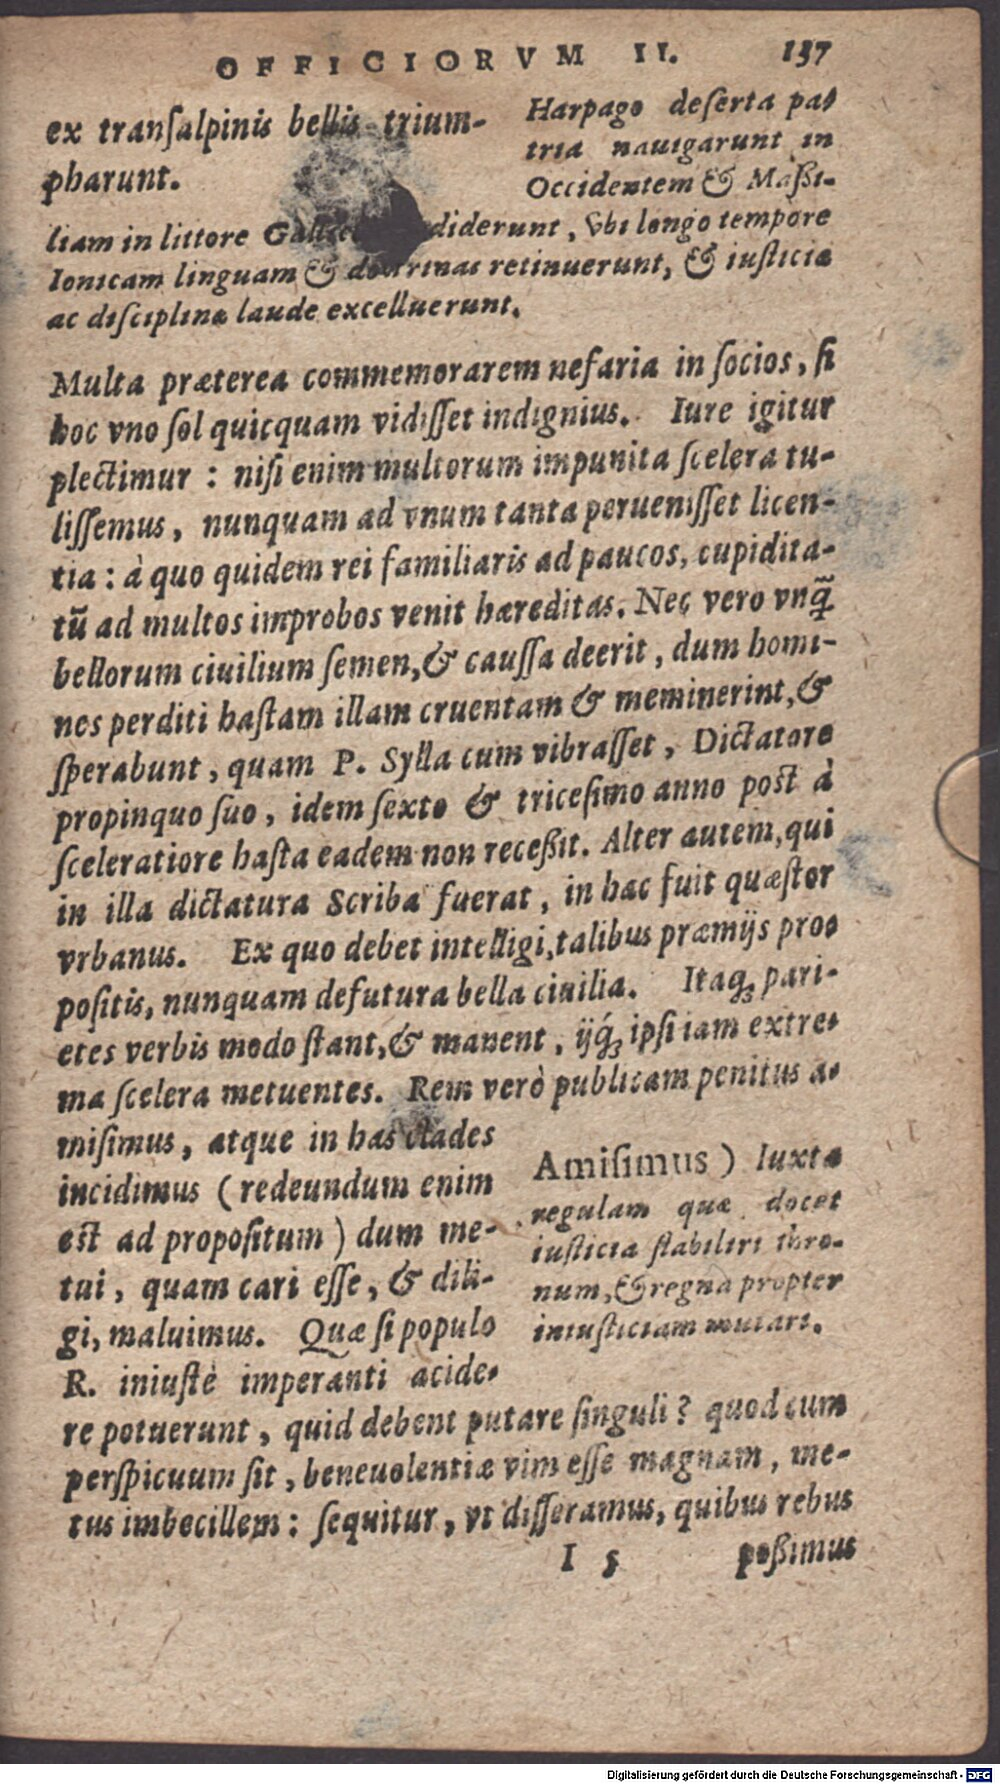 OFFICIORVM II. 137
ex transalpinis bellis trium-
pharunt.
Harpago deserta pa-
tria nauigarunt in
Occidentem & Maßi-
liam in littore diderunt, vbi longo tempore
Ionicam linguam & doctrinas retinuerunt, & iusticiæ
ac disciplinæ laude excelluerunt.
Multa præterea commemorarem nefaria in socios, si
hoc vno sol quicquam vidisset indignius. Iure igitur
plectimur : nisi enim multorum impunita scelera tu-
lissemus, nunquam ad vnum tanta peruenisset licen-
tia : à quo quidem rei familiaris ad paucos, cupidita-
tū ad multos improbos venit hæreditas. Nec vero vnq̃
bellorum ciuilium semen, & caussa deerit, dum homi-
nes perditi hastam illam cruentam & meminerint, &
sperabunt, quam P. Sylla cum vibrasset, Dictatore
propinquo suo, idem sexto & tricesimo anno post à
sceleratiore hasta eadem non receßit. Alter autem, qui
in illa dictatura Scriba fuerat, in hac fuit quæstor
vrbanus. Ex quo debet intelligi, talibus præmijs pro-
positis, nunquam defutura bella ciuilia. Itaq; pari-
etes verbis modo stant, & manent, ijq́; ipsi iam extre-
ma scelera metuentes. Rem verò publicam penitus a-
misimus, atque in has clades
incidimus (redeundum enim
est ad propositum) dum me-
tui, quam cari esse, & dili-
gi, maluimus. Quæ si populo
R. iniustè imperanti acide-
Amisimus) Iuxta
regulam quæ docet
iusticia stabiliri thro-
num, & regna propter
iniusticiam mutari.
re potuerunt, quid debent putare singuli? quod cum
perspicuum sit, beneuolentiæ vim esse magnam, me-
tus imbecillem: sequitur, vt disseramus, quibus rebus
I 5 poßimus
Digitalisierung gefördert durch die Deutsche Forschungsgemeinschaft - DFG